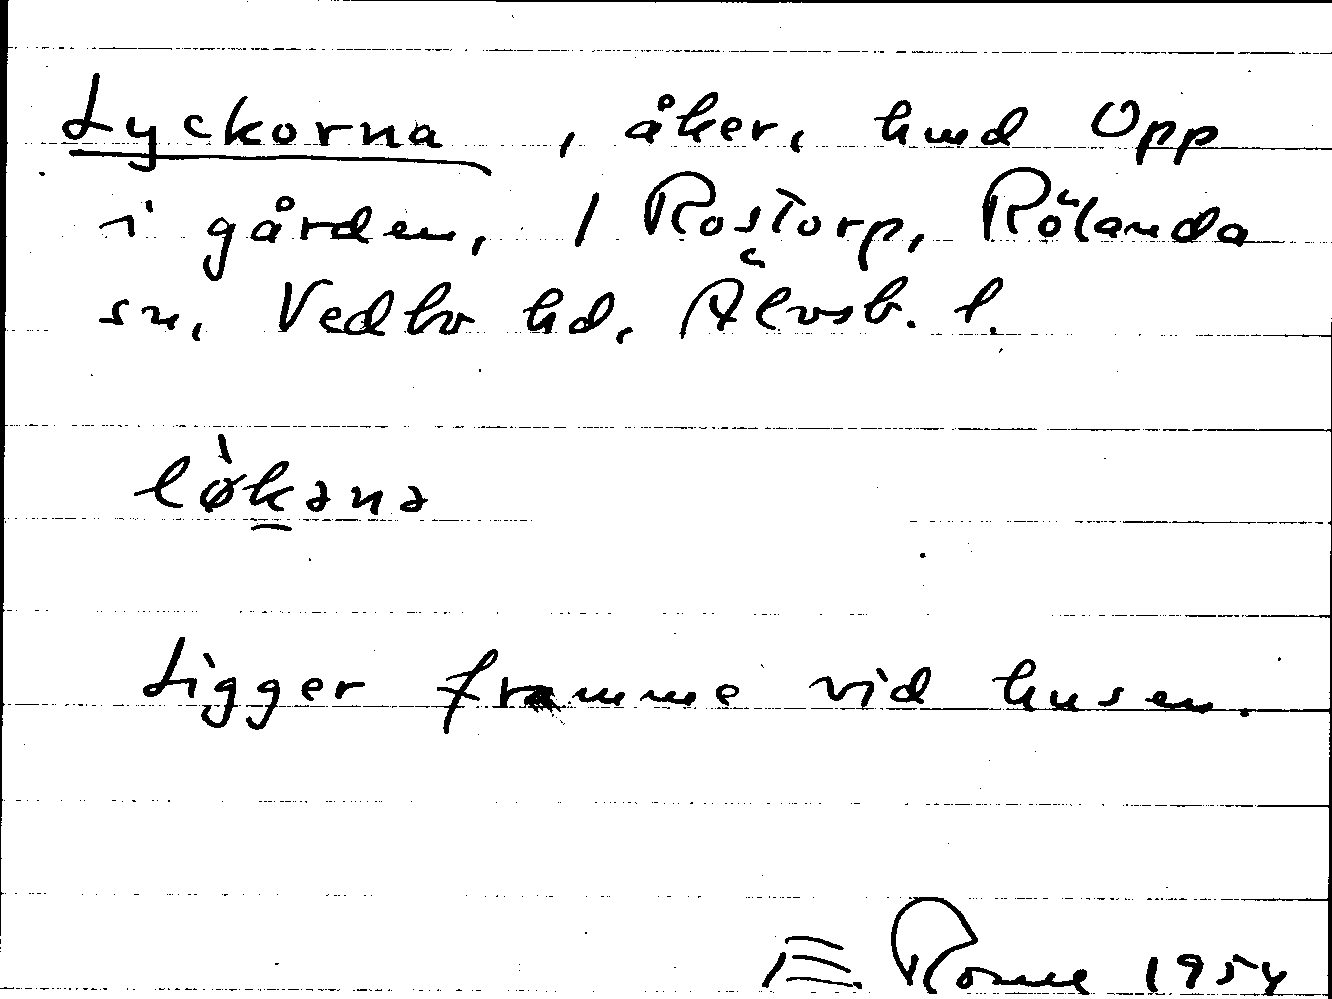 Lyckorna, åker, hmd Opp
i gården, 1 Rostorp, Rölanda
sn, Vedbo hd, Älvsb. l.
lø̀k̲ənə
Ligger framme vid husen.
E. 1954